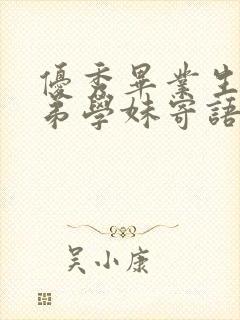 優秀畢業生
弟學妹寄語
吴小康